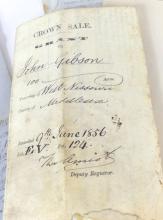 CROWN SALE.
GRANT
TO
John Gibson
100
Township of West Nissouri
County of Middlesex
Recorded 9th June 1856
Lib. E.V. Fol. 124.
Deputy Registrar.